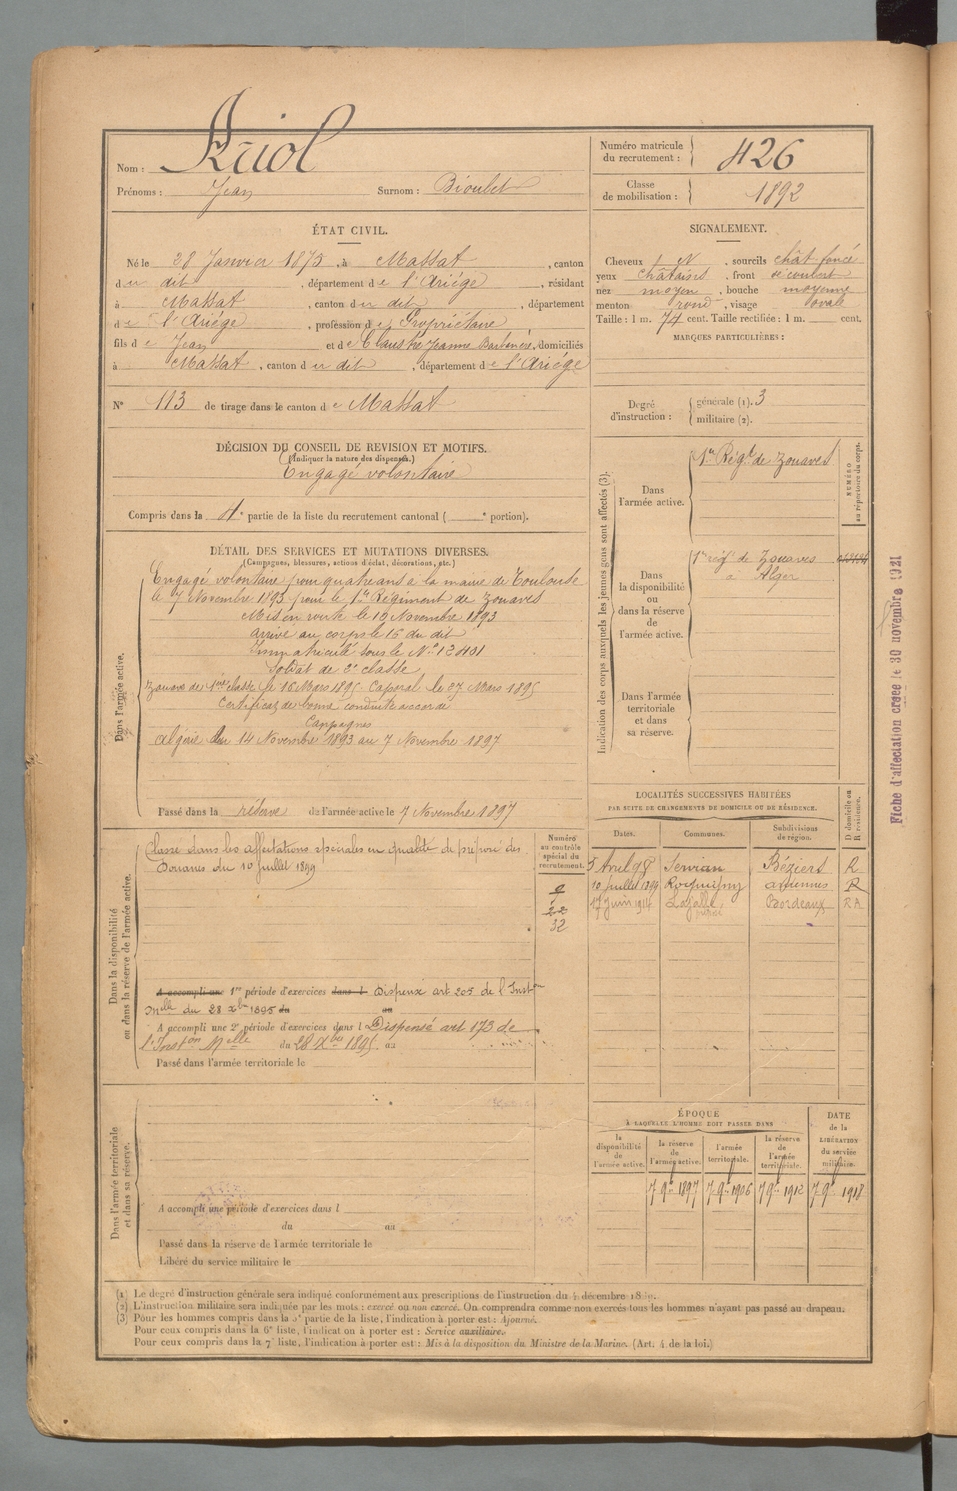 Nom : Ariol
Prénoms : Jean Surnom : Bioulet
Numéro matricule du recrutement : 426
Classe de mobilisation : 1892
ÉTAT CIVIL.
Né le 28 Janvier 1873, à Massat, canton
du dit, département de l'Ariége, résidant
à Massat, canton du dit, département
de l'Ariége, profession de Propriétaire
fils de Jean et de Claustre Jeanne, domiciliés
à Massat, canton du dit, département de l'Ariége
N° 113 de tirage dans le canton de Massat
SIGNALEMENT.
Cheveux et, sourcils chât foncé
yeux châtains, front découvert
nez moyen, bouche moyenne
menton rond, visage ovale
Taille : 1 m. 74 cent. Taille rectifiée : 1 m. cent.
MARQUES PARTICULIÈRES :
Degré d'instruction : générale (1). 3
militaire (2).
DÉCISION DU CONSEIL DE REVISION ET MOTIFS.
(Indiquer la nature des dispenses.)
Engagé volontaire
Compris dans la 4e partie de la liste du recrutement cantonal ( e portion).
DÉTAIL DES SERVICES ET MUTATIONS DIVERSES.
(Campagnes, blessures, actions d'éclat, décorations, etc.)
Dans l'armée active.
Engagé volontaire pour quatre ans a la mairie de Toulouse
le 7 Novembre 1893 pour le 1er Régiment de Zouaves
Mis en route le 10 Novembre 1893
arrivé au corps le 15 du dit
Immatriculé sous le N° 13401
Soldat de 2e classe
Zouave de 1ère classe le 16 Mars 1895 Caporal le 27 Mars 1895
Certificat de bonne conduite accordé
Campagnes
Algérie du 14 Novembre 1893 au 7 Novembre 1897
Passé dans la réserve de l'armée active le 7 Novembre 1897
Indication des corps auxquels les jeunes gens sont affectés (3).
NUMÉRO au répertoire du corps.
Dans l'armée active.
1er Régt de Zouaves
Dans la disponibilité ou dans la réserve de l'armée active.
1er régt de Zouaves
à Alger
Dans l'armée territoriale et dans sa réserve.
Fiche d'affectation créée le 30 novembre 1921
LOCALITÉS SUCCESSIVES HABITÉES
PAR SUITE DE CHANGEMENTS DE DOMICILE OU DE RÉSIDENCE.
Dates. Communes. Subdivisions de région. D domicile ou R résidence.
5 Avril 98 Servian Béziers R
10 Juillet 1899 Rocquigny R
17 Juin 1914 Bordeaux RA
Dans la disponibilité ou dans la réserve de l'armée active.
Numéro au contrôle spécial du recrutement.
Classé dans les affectations spéciales en qualité de préposé des
Douanes du 10 juillet 1899
22
32
A accompli une 1re période d'exercices dans l Dispensé art 205 de l'Inston
Melle du 28 Xbre 1895 du au
A accompli une 2e période d'exercices dans l Dispensé art 173 de
l'Inston Melle du 28 Xbre 1895 au
Passé dans l'armée territoriale le
Dans l'armée territoriale et dans sa réserve.
A accompli une période d'exercices dans l
du au
Passé dans la réserve de l'armée territoriale le
Libéré du service militaire le
ÉPOQUE
À LAQUELLE L'HOMME DOIT PASSER DANS
la disponibilité de l'armée active. la réserve de l'armée active. l'armée territoriale. la réserve de l'armée territoriale.
DATE de la LIBÉRATION du service militaire.
7 9bre 1897 7 9bre 1906 7 9bre 1912 7 9bre 1918
(1) Le degré d'instruction générale sera indiqué conformément aux prescriptions de l'instruction du 4 décembre
(2) L'instruction militaire sera indiquée par les mots : exercé ou non exercé. On comprendra comme non exercés tous les hommes n'ayant pas passé au drapeau.
(3) Pour les hommes compris dans la 5e partie de la liste, l'indication à porter est : Ajourné.
Pour ceux compris dans la 6e liste, l'indication à porter est : Service auxiliaire.
Pour ceux compris dans la 7e liste, l'indication à porter est : Mis à la disposition du Ministre de la Marine. (Art. 4 de la loi.)